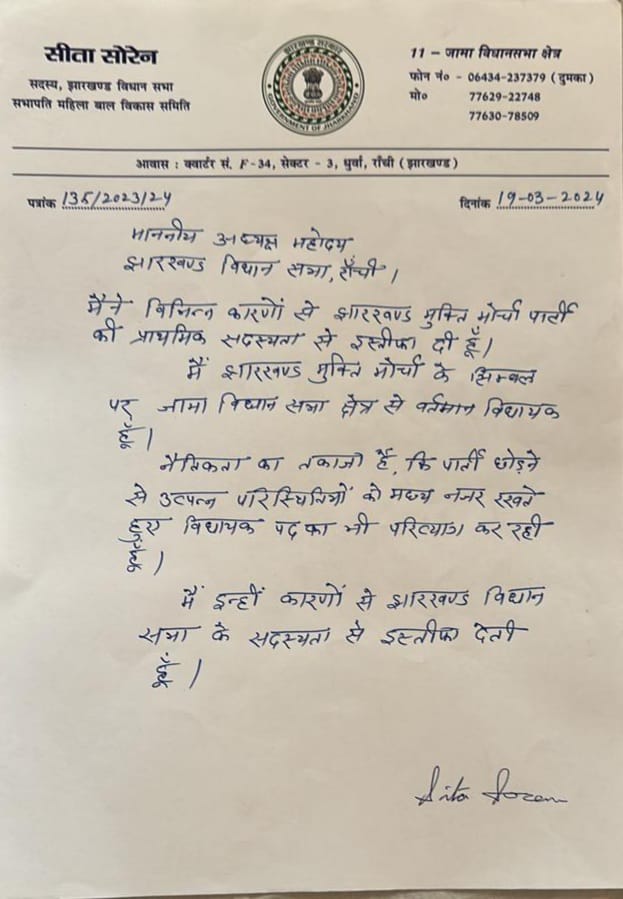 सीता सोरेन
सदस्य, झारखण्ड विधान सभा
सभापति महिला बाल विकास समिति
झारखण्ड सरकार
GOVERNMENT OF JHARKHAND
11 - जामा विधानसभा क्षेत्र
फोन नं० - 06434-237379 (दुमका)
मो० 77629-22748
77630-78509
आवास : क्वार्टर सं. F-34, सेक्टर - 3, धुर्वा, राँची (झारखण्ड)
पत्रांक 135/2023/24
दिनांक 19-03-2024
माननीय अध्यक्ष महोदय
झारखण्ड विधान सभा, राँची।
मैंने विभिन्न कारणों से झारखण्ड मुक्ति मोर्चा पार्टी
की प्राथमिक सदस्यता से इस्तीफा दी हूँ।
मैं झारखण्ड मुक्ति मोर्चा के सिम्बल
पर जामा विधान सभा क्षेत्र से वर्तमान विधायक
हूँ।
नैतिकता का तकाजा है, कि पार्टी छोड़ने
से उत्पन्न परिस्थितियों को मध्य नजर रखते
हुए विधायक पद का भी परित्याग कर रही
हूँ।
मैं इन्हीं कारणों से झारखण्ड विधान
सभा के सदस्यता से इस्तीफा देती
हूँ।
Sita Soren